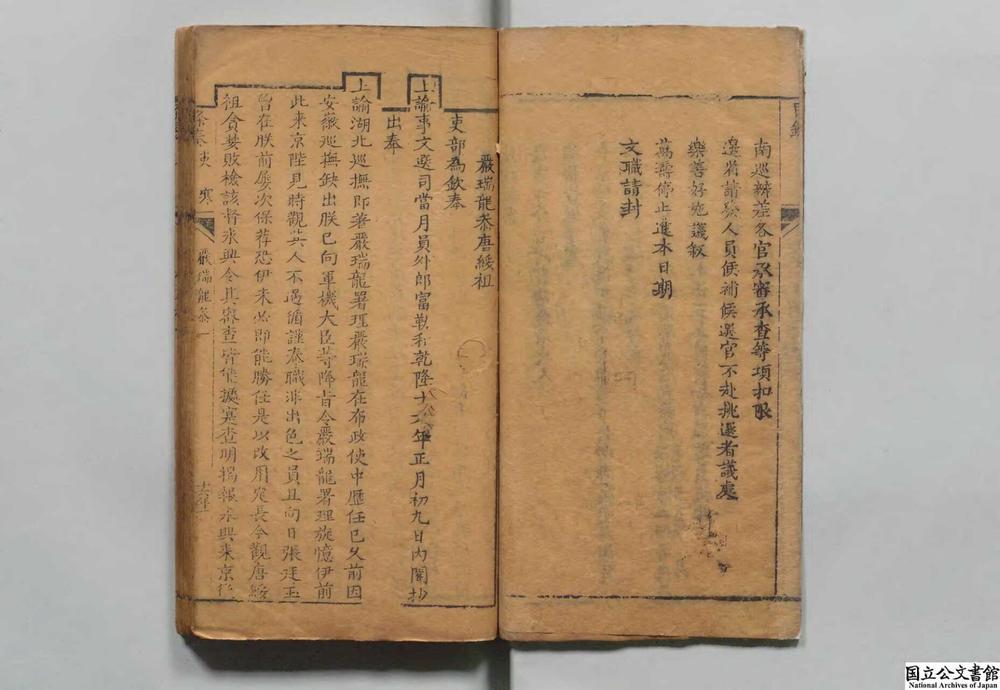 目錄
南巡辦差各官承審承查等項扣限
邊省請發人員候補候選官不赴挑選者議處
樂善好施議叙
薦需停止進本日期
文職請封
嚴瑞龍叅唐綏祖
吏部為欽奉
上諭事文選司當月員外郎富勒和乾隆十六年正月初九日内閣抄
出奉
上諭湖北巡撫即著嚴瑞龍署理嚴瑞龍在布政使中歷任已久前因
安徽巡撫缺出朕已向軍機大臣等降旨令嚴瑞龍署理旋憶伊前
此來京陛見時觀其人不過循謹奉職非出色之員且向日張廷玉
曾在朕前屡次保荐恐伊未必即能勝任是以改用定長今觀唐綏
祖貪婪敗檢該督永興令其審查皆能據實查明揭報永興来京復
條奏吏 寒 嚴瑞龍叅一
国立公文書館
National Archives of Japan